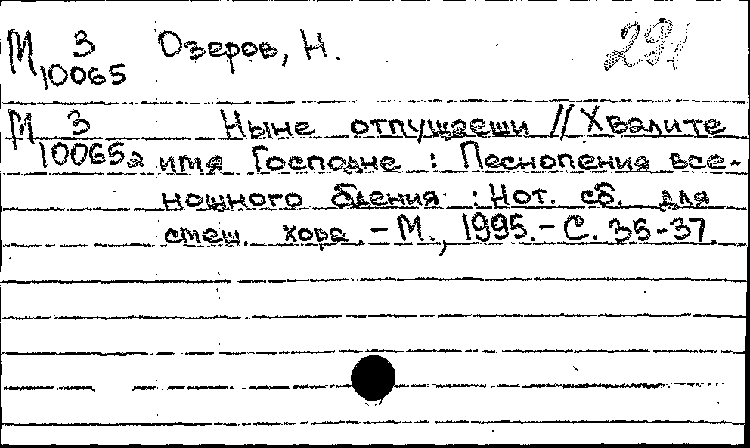 М 3 Озеров, Н. 291
10065
М 3 Ныне отпущаеши // Хвалите
10065а имя Господне : Песнопения все-
нощного бдения : Нот. сб. для
смеш. хора. - М., 1995. - С. 35-37.